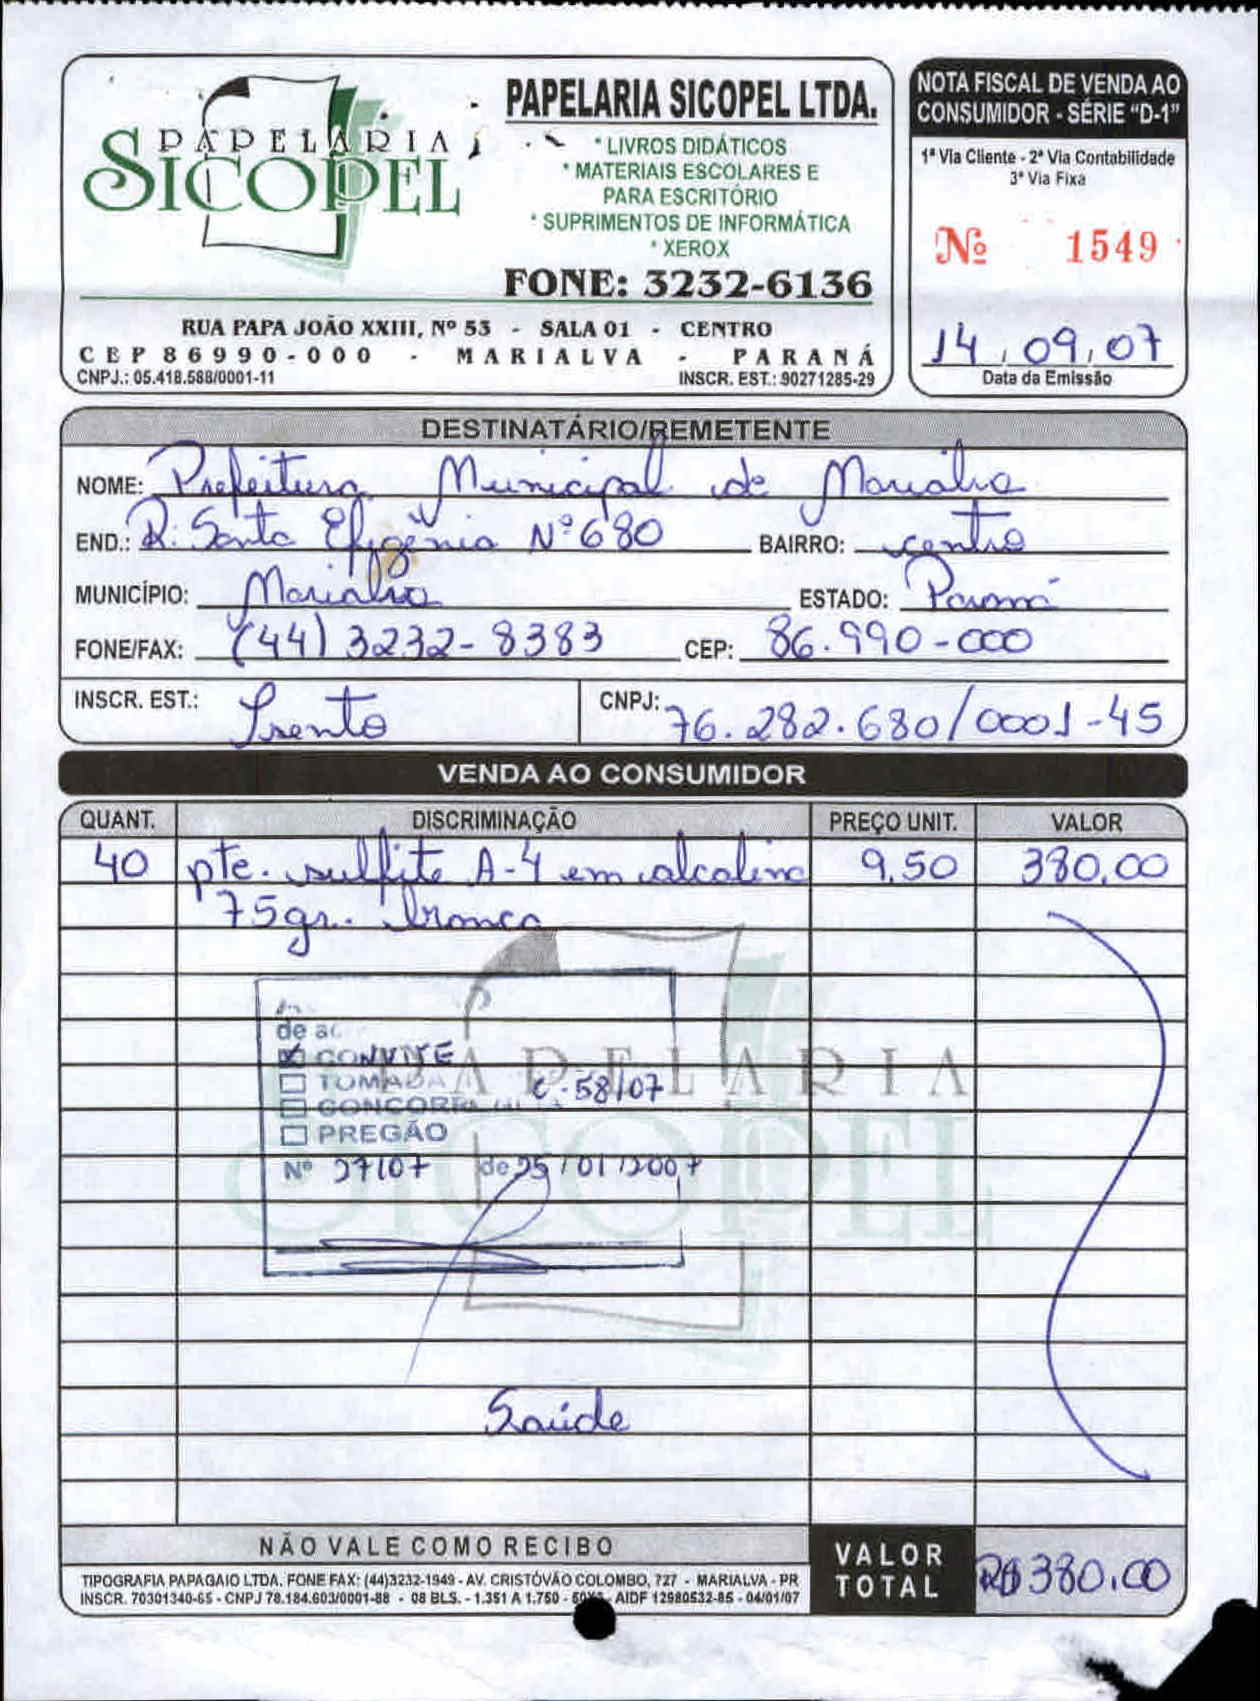 PAPELARIA
SICOPEL
PAPELARIA SICOPEL LTDA.
* LIVROS DIDÁTICOS
* MATERIAIS ESCOLARES E
PARA ESCRITÓRIO
* SUPRIMENTOS DE INFORMÁTICA
* XEROX
FONE: 3232-6136
RUA PAPA JOÃO XXIII, Nº 53 - SALA 01 - CENTRO
CEP 86990-000 - MARIALVA - PARANÁ
CNPJ.: 05.418.588/0001-11 INSCR. EST.: 90271285-29
NOTA FISCAL DE VENDA AO
CONSUMIDOR - SÉRIE "D-1"
1ª Via Cliente - 2ª Via Contabilidade
3ª Via Fixa
Nº 1549
14, 09, 07
Data da Emissão
DESTINATÁRIO/REMETENTE
NOME: Prefeitura Municipal de Marialva
END.: R. Santa Efigênia Nº 680 BAIRRO: centro
MUNICÍPIO: Marialva ESTADO: Paraná
FONE/FAX: (44) 3232-8383 CEP: 86.990-000
INSCR. EST.: Isento CNPJ: 76.282.680/0001-45
VENDA AO CONSUMIDOR
QUANT. DISCRIMINAÇÃO PREÇO UNIT. VALOR
40 pte. sulfite A-4 em alcalino 9,50 380,00
75gr. branco
de
CONVITE
TOMADA
C. 58/07
PREGÃO
Nº 27/07 de 25/01/2007
PAPELARIA
SICOPEL
Saúde
NÃO VALE COMO RECIBO
VALOR TOTAL R$ 380,00
TIPOGRAFIA PAPAGAIO LTDA. FONE FAX: (44)3232-1949 - AV. CRISTÓVÃO COLOMBO, 727 - MARIALVA - PR
INSCR. 70301340-65 - CNPJ 78.184.603/0001-88 - 08 BLS. - 1.351 A 1.750 - AIDF 12980532-85 - 04/01/07